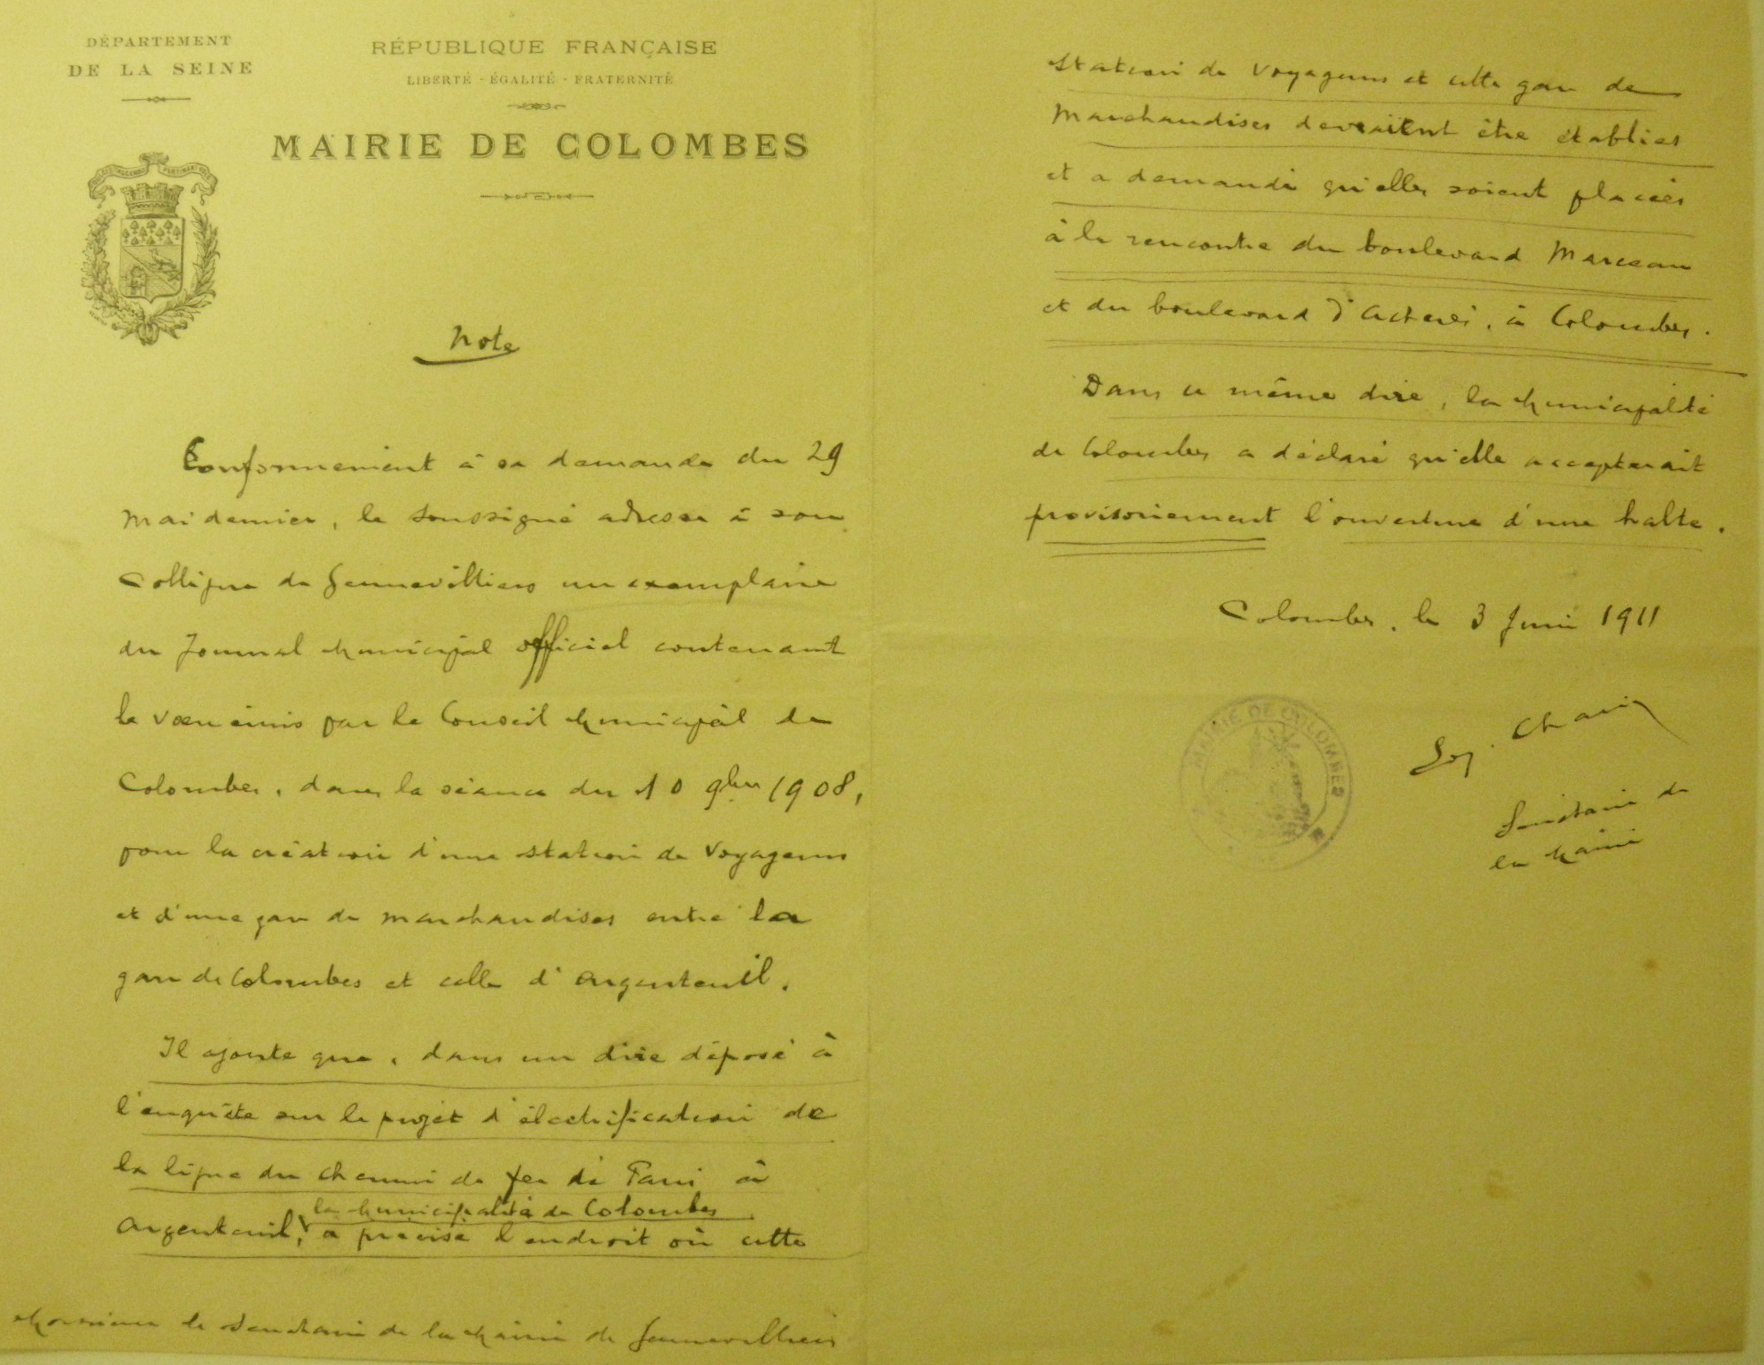 DÉPARTEMENT
DE LA SEINE
RÉPUBLIQUE FRANÇAISE
LIBERTÉ - ÉGALITÉ - FRATERNITÉ
MAIRIE DE COLOMBES
Note
Conformément à sa demande du 29
Mai dernier, le soussigné adresse à son
Collègue de Gennevilliers un exemplaire
du Journal Municipal officiel contenant
le vœu émis par le Conseil Municipal de
Colombes, dans la séance du 10 9bre 1908,
pour la création d'une station de Voyageurs
et d'une gare de marchandises entre la
gare de Colombes et celle d'Argenteuil.
Il ajoute que, dans un dire déposé à
l'enquête sur le projet d'électrification de
la ligne du chemin de fer de Paris à
la Municipalité de Colombes
Argenteuil, a précisé l'endroit où cette
Monsieur le Secrétaire de la Mairie de Gennevilliers
station de Voyageurs et cette gare de
Marchandises devraient être établies
et a demandé qu'elles soient placées
à la rencontre du boulevard Marceau
et du boulevard d'Achères, à Colombes.
Dans ce même dire, la Municipalité
de Colombes a déclaré qu'elle accepterait
provisoirement l'ouverture d'une halte.
Colombes, le 3 Juin 1911
MAIRIE DE COLOMBES
Secrétaire de
la Mairie